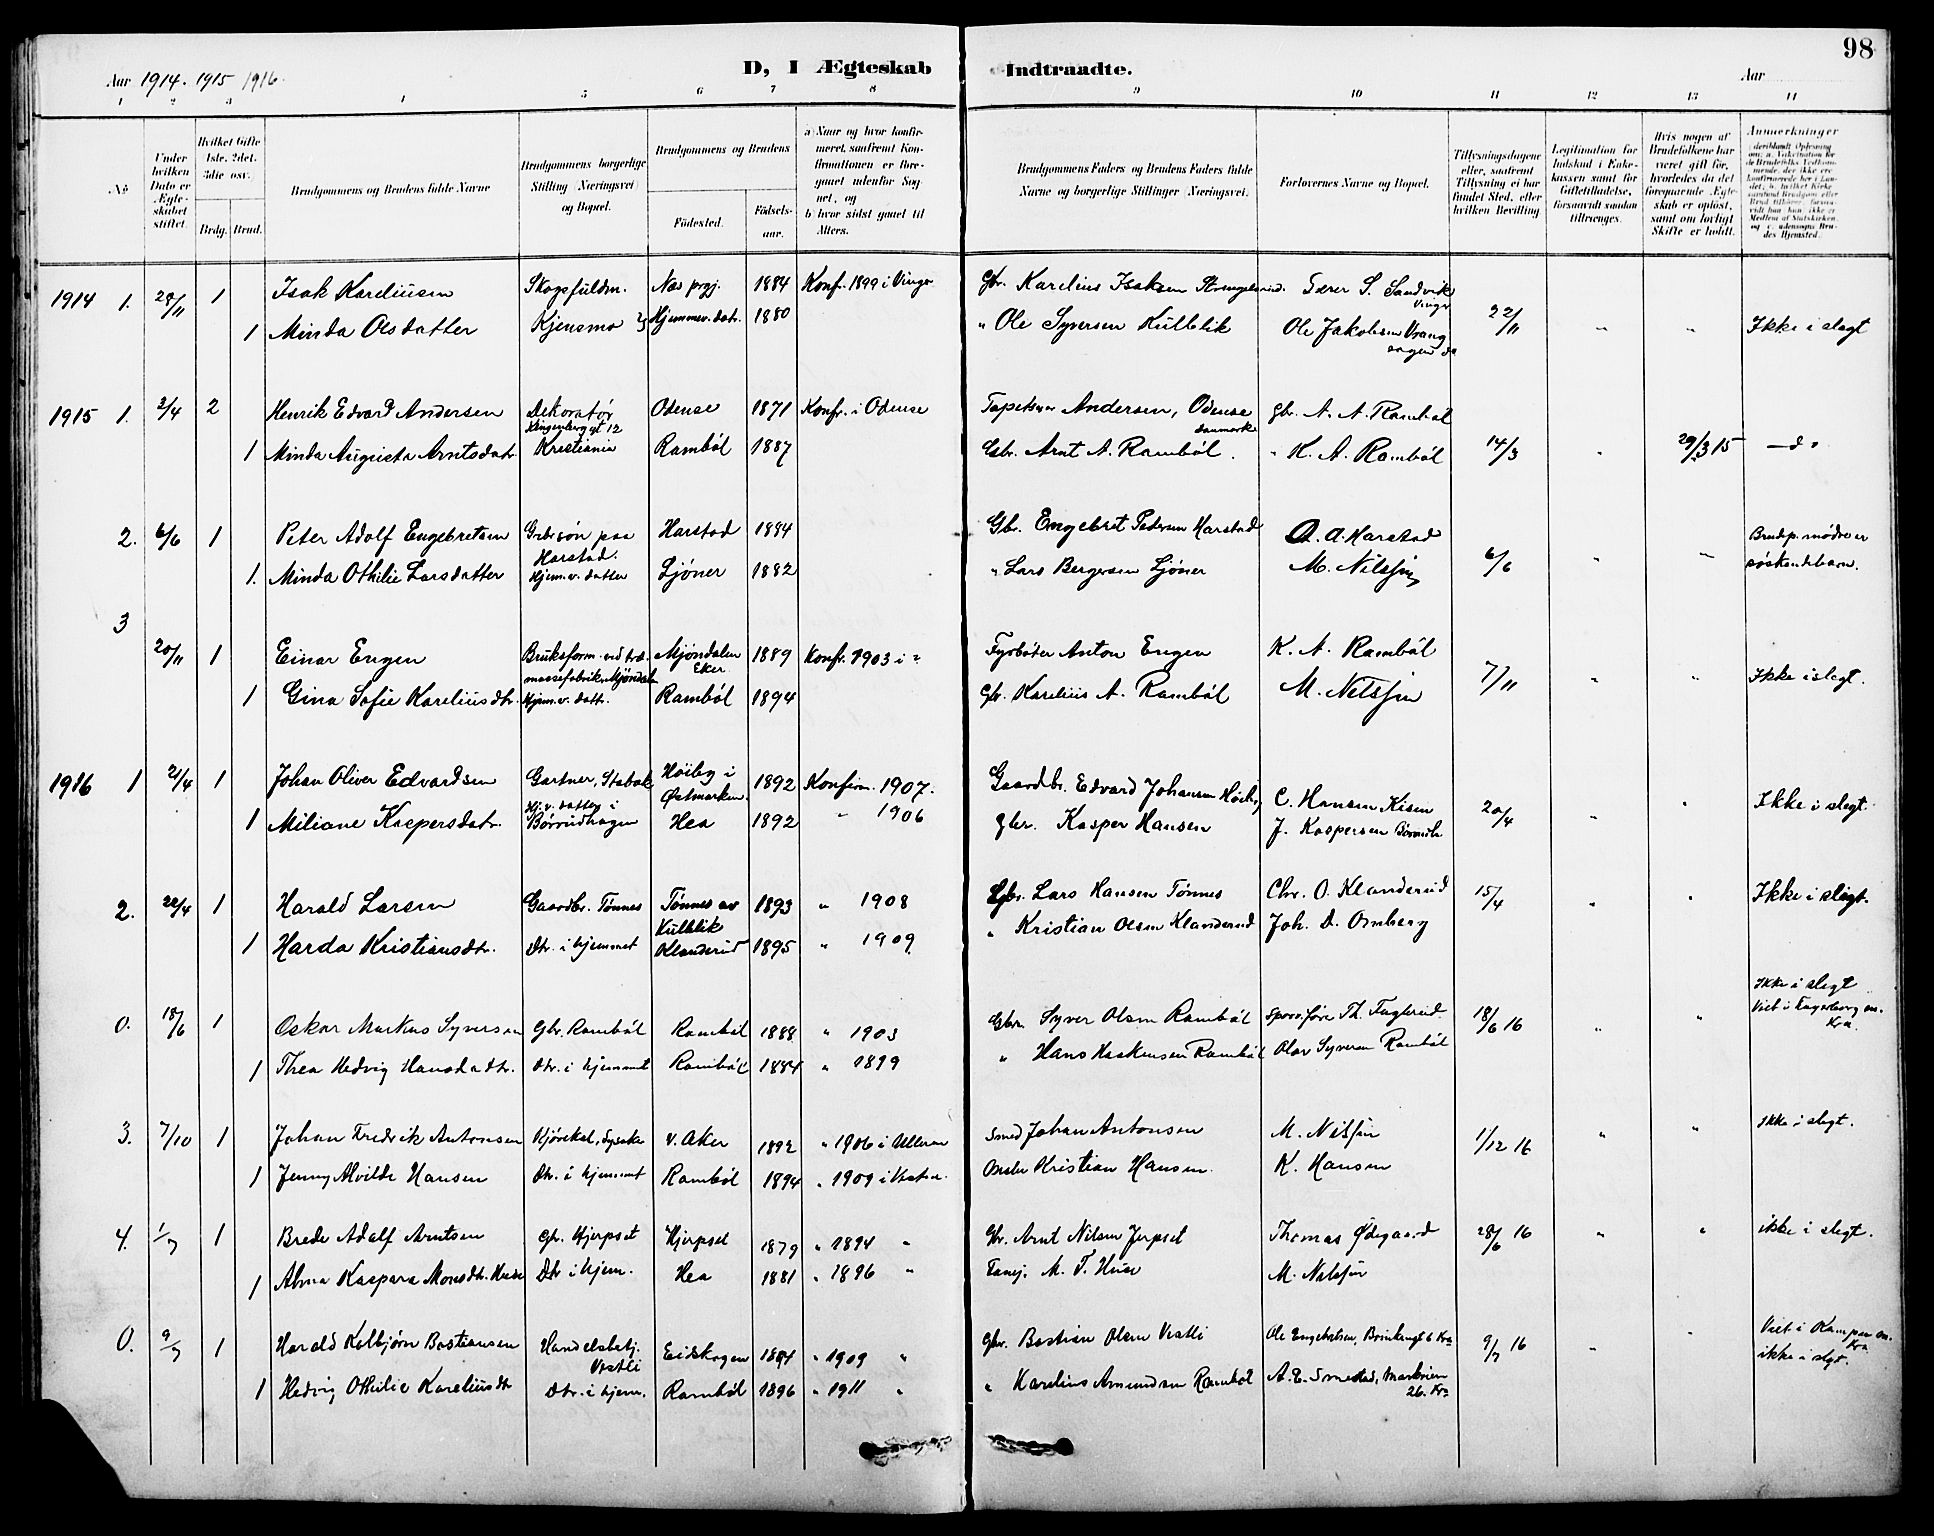 98
Aar 1914. 1915 1916.
D, I Ægteskab Indtraadte.
Aar
1 2 3 4 5 6 7 8 9 10 11 12 13 14
No
Under hvilken Dato er Ægteskabet stiftet.
Hvilket Gifte 1ste. 2det. 3die osv.
Brdg. Brud.
Brudgommens og Brudens fulde Navne
Brudgommens borgerlige Stilling (Næringsvei) og Bopæl.
Brudgommens og Brudens
Födested.
Födselsaar.
a) Naar og hvor konfirmeret, saafremt Konfirmationen er foregaaet udenfor Sognet, og
b) hvor sidst gaaet til Alters.
Brudgommens Faders og Brudens Faders fulde Navne og borgerlige Stillinger (Næringsvei).
Forlovernes Navne og Bopæl.
Tillysningsdagene eller, saafremt Tillysning ei har fundet Sted, efter hvilken Bevilling
Legitimation for Indskud i Enkekassen samt for Giftetilladelse, forsaavidt saadan tiltrænges.
Hvis nogen af Brudefolkene har været gift för, hvorledes da det foregaaende Ægteskab er oplöst, samt om lovligt Skifte er holdt.
Anmerkninger
1914 1. 28/11 1 Isak Kareliusen Skogsfuldm. Næs prgj. 1884 Konf. 1899 i Vinger Gbr. Karelius Isaksen Tærer S. Sandvik Vinger
1 Minda Olsdatter Kjensmo Hjemmev. datr. 1880 " Ole Syversen Kulblik Ole Jakobsen 22/11 " " Ikke i slegt
1915 1. 3/4 2 Henrik Edvard Andersen Dekoratør Odense 1871 Konf. i Odense Tapetserer Andersen, Odense Danmark Gbr. A. A. Rambøl
Klingenberg gt 12
1 Minda Augusta Arntsdatr. Kristiania Rambøl 1887 Gbr. Arnt A. Rambøl. " K. A. Rambøl 14/3 " 29/3 15 — d o
2. 6/6 1 Peter Adolf Engebretsen Gbr. søn paa Harstad. Harstad 1884 Gbr. Engebret Pedersen Harstad A. A. Harstad Brudep. mødre er
1. Minda Othilie Larsdatter Hjem. v. datter Ljøner 1882 " Lars Bergersen Ljøner M. Nilssen 6/6 " — søskendebarn.
3
20/11 1 Einar Engen Bruksform. ved træ- Mjøndalen Eker 1889 Konf. 1903 i " Fyrbøter Anton Engen K. A. Rambøl
massefabrik, Mjøndalen
1 Gina Sofie Kareliusdtr. Hjem. v. datr. Rambøl 1894 Gbr. Karelius A. Rambøl M. Nilssen 7/11 " " Ikke i slegt.
1916 1 21/4 1 Johan Oliver Edvardsen Gartner, Stabæk Høiby i Østmarken. 1892 Konfirm. 1907. Gaardbr. Edvard Johansen Høiby C. Hansen Kisen
1 Miliane Kaspersdatr. Hj. v. datter i Børrudhagen Hea 1892 " 1906 Gbr. Kasper Hansen J. Kaspersen 20/4 " " Ikke i slegt
2. 22/4 1 Harald Larsen Gaardbr. Tønnes Tønnes av Kulblik 1893 " 1908 Gbr. Lars Hansen Tønnes Chr. O. Klanderud 15/4 " " Ikke i slegt.
1 Harda Kristiansdtr. Dtr. i hjemmet Klanderud 1895 " 1909 " Kristian Olsen Klanderud Joh. D. Omberg
0. 18/6 1 Oskar Markus Syversen Gbr. Rambøl Rambøl 1888 " 1903 Gbr. Syver Olsen Rambøl Th. Faglerud 18/6 16 " " Ikke i slegt Viet i Fagerborg m. Kra.
1 Thea Hedvig Hansdadtr. Dtr. i hjemmet Rambøl 1884 " 1899 " Hans Haakensen Rambøl Olav Syversen Rambøl
3. 7/10 1 Johan Fredrik Antonsen V. Aker 1892 " 1906 i Smed Johan Antonsen M. Nilssen 1/12 16 " " Ikke i slegt.
1 Jenny Alvilde Hansen Dtr. i hjemmet Rambøl 1894 " 1909 i Kristian Hansen. K. Hansen
4. 1/7 1 Brede Adolf Arntsen Gbr. Hjerpset Hjerpset 1879 " 1894 " Gbr. Arnt Nilsen Jerpset Thomas Ødegaard 28/6 16 " " ikke i slegt.
1 Alma Kaspara Monsdtr. Huse Dtr. i hjem. Hea 1881 " 1896 " M. T. Huse M. Nilssen
0. 9/7 1 Harald Kolbjørn Bastiansen Handelsbetj. Vestli Eidskogen 1894 " 1909 " Gbr. Bastian Olsen Vestli Ole Engebretsen, Brinkengt 6 Kra 9/7 16 " " Viet i Kampen m. Kra ikke i slegt.
1 Hedvig Othilie Kareliusdt Dtr. i hjem. Rambøl 1896 " 1911 " " Karelius Amundsen Rambøl A. E. Smestad, 26. Kra